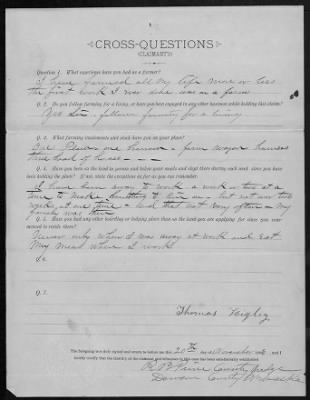 CROSS-QUESTIONS
(CLAIMANT'S)
Question 1. What experience have you had as a farmer?
I have farmed all my life more or less
the first work I was was on a farm
Q. 2. Do you follow farming for a living, or have you been engaged in any other business while holding this claim?
Yes Sir - follow farming for a living
Q. 4. What farming implements and stock have you on your place?
One Plow one harrow - farm wagon harness
one of horses
Q. 5. Have you been on the land in person and below your meals and slept there during each month since you have
been holding the place? If not, state the exceptions as far as you can remember.
I have been away to work a week or two at a
time to make something to live on - but not over two
weeks at one time - and that not very often - my
family was there
Q. 6. Have you had any other boarding or lodging place than on the land you are applying for since you commenced to reside there?
Never only when I was away at work and eat
My meal where I work.
Q. 7.
Thomas Higley
The foregoing is a duly signed and sworn to before me this 20th day of November 188 , and I
hereby certify that the identity of the claimant and witnesses in this case has been satisfactorily established.
County Judge
Dawson County Nebraska